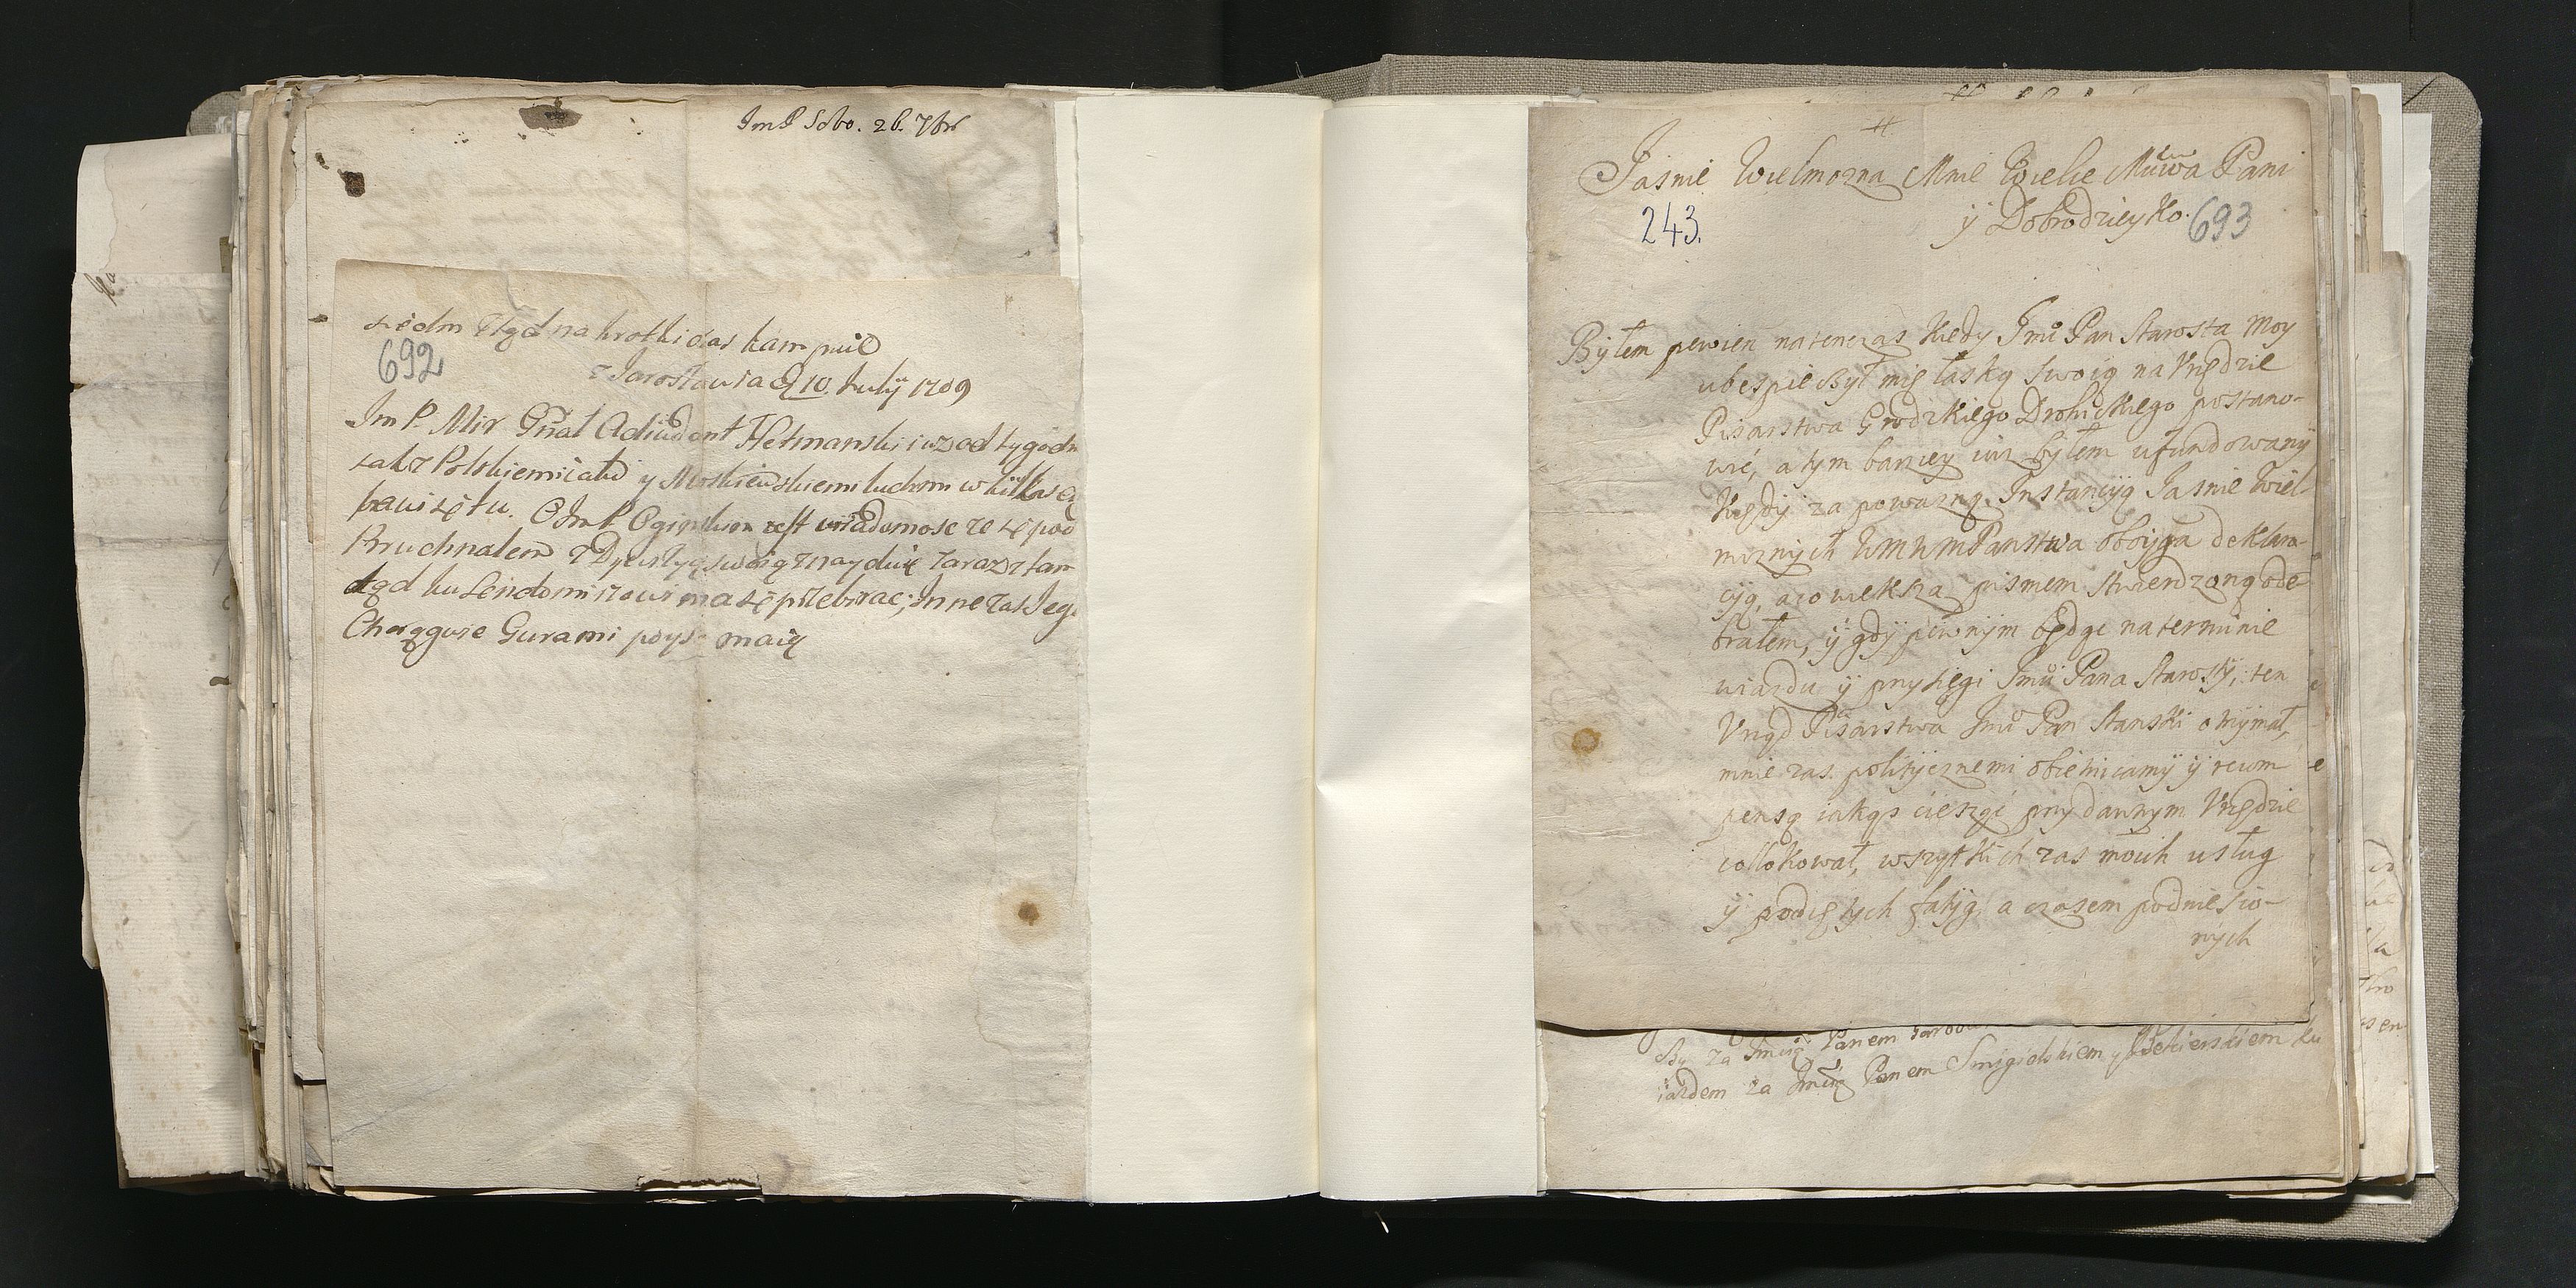 ImP Sobo. 26. 7br
siedm ztąd na krotki czas kam mil
692
z Jarosławia d 10. Julij 1709
Im P. Mir Gñał Adiudant Hetmanski iuz od tygodn
sak z Polskiemi iako y Moskiewskiemi ludzmi w kilkaset
bawi się tu. O Im P. Oginskim iest wiadomosc ze się pod
Bruchnalem z Dywizyą swoią znayduie zaraz z tam
tąd ku Sendomirzowi ma się przebirac; Inne zas Jego
Chorągwie Gurami poyść maią
Jasnie Wielmozna Mnie Wielce Mṁwa Pani
y Dobrodzieyko.
243. 693
Byłem pewien natenczas kiedy Jmć Pan Starosta Moy
ubespieczył mię łaską swoią na Vrzędzie
Pisarstwa Grodzkiego Drohickiego postano-
wić, a tym barziey iuz byłem ufundowany
kiędy za powazną Instancyią Jasnie Wiel-
moznych WMWMPanstwa oboyga deklara-
cyią, a co wieksza pismem stwierdzoną ode-
brałem, y gdy pewnym będąc na terminie
wiazdu y przysięgi Jmci Pana Starosty, ten
Vrząd Pisarstwa Jmć Pan Stanski otrzymał,
mnie zas politycznemi obietnicamy y recom
pensą iakąs cieszyć przy dawnym Vrzędzie
collokował, wszytkich zas moich usług
y podiętych fatyg, a czasem podniesio-
nych
By za Jmcią Panem
iazdem za Jmcią Panem Smigielskiem y ku